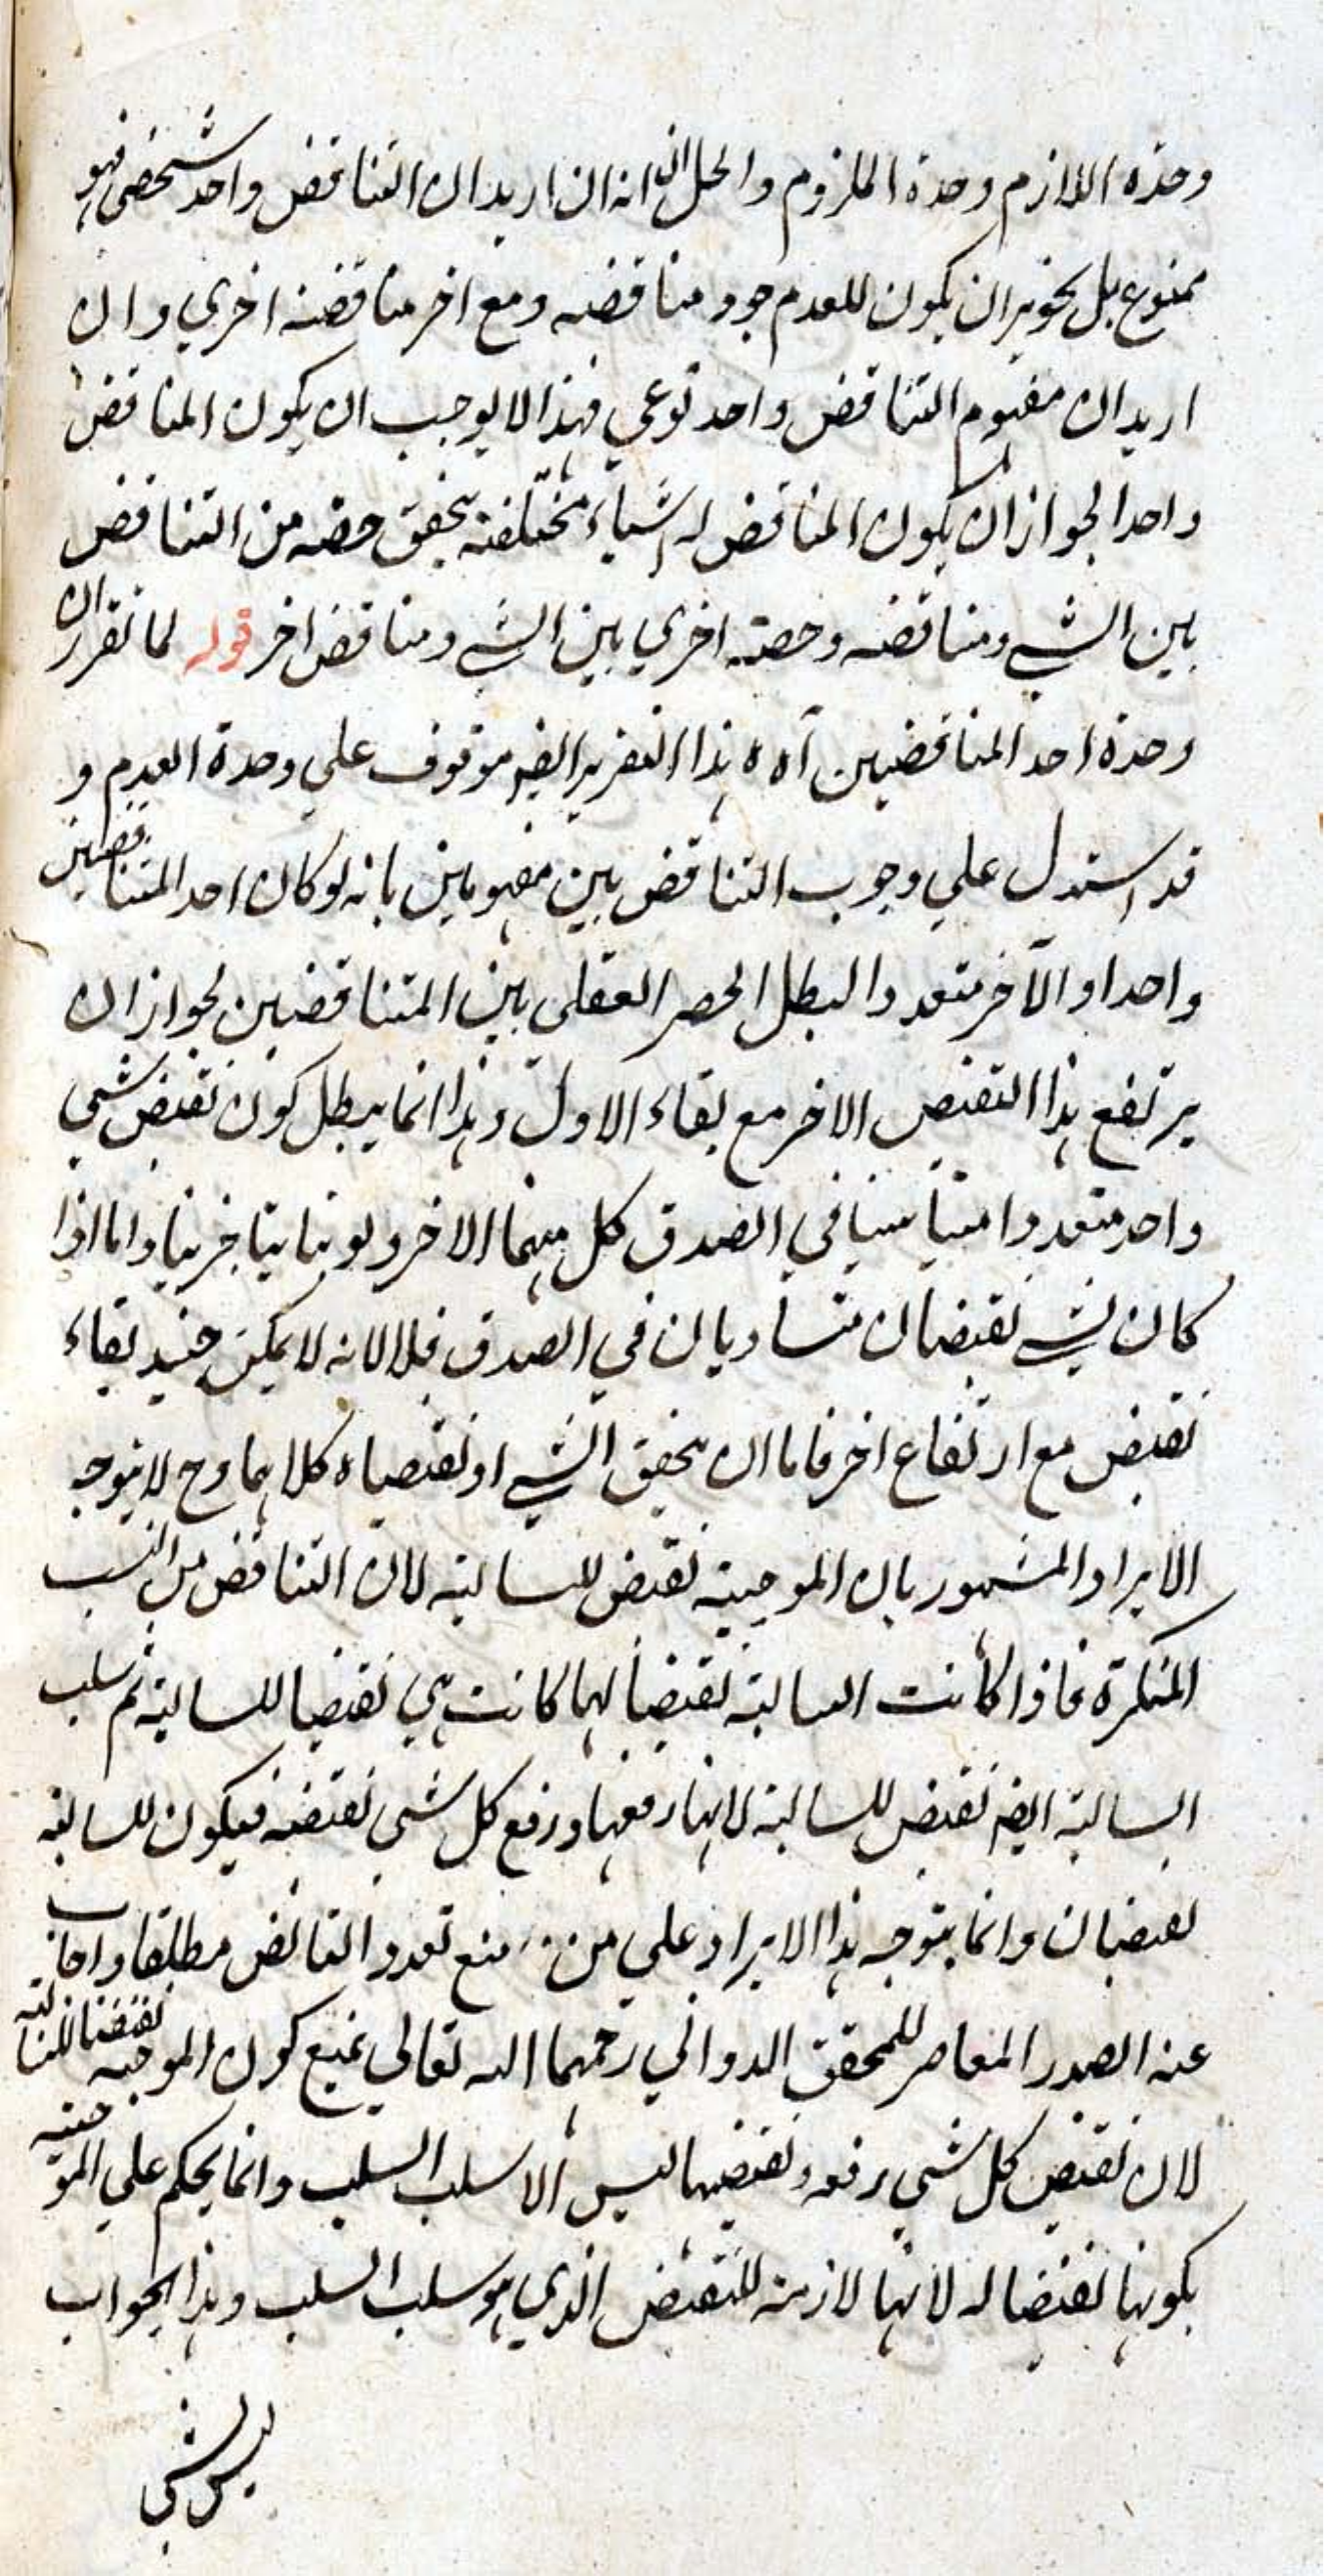 وحدة اللازم وحدة الملزوم والحل انه ان اريد ان التناقض واحد شخصي فهو
ممنوع بل يجوز ان يكون للعدم مناقضة ومع اخر مناقضة اخري وان
اريد ان مفهوم التناقض واحد نوعي فهذا لا يوجب ان يكون المناقض
واحدا لجواز ان يكون المناقض له اشياء مختلفة يتحقق حصة من التناقض
بين الشي ومناقضه وحصة اخري بين الشي ومناقض اخر قوله لما تقرر ان
وحدة احد المناقضين آه هذا التقرير ايضا موقوف علي وحدة العدم و
قد استدل علي وجوب التناقض بين مفهومين بانه لو كان احد المتناقضين
واحدا والآخر متعددا لبطل الحصر العقلي بين المتناقضين لجواز ان
يرتفع هذا النقيض الاخر مع بقاء الاول وهذا انما يبطل كون نقيض شي
واحد متعددا في الصدق كل منهما الاخر ولو تباينا جزئيا واما اذا
كان لشي نقيضان متساويان في الصدق فلا لانه لا يمكن حينئد بقاء
نقيض مع ارتفاع اخر فاما ان يتحقق الشي او نقيضاه كلاهما وح لا يتوجه
الايراد المشهور بان الموجبة نقيض للسالبة لان التناقض من النسب
المتكررة فاذا كانت السالبة نقيضا لها كانت هي نقيضا للسالبة ثم سلب
السالبة ايضا نقيض للسالبة لانها رفعها ورفع كل شي نقيضه فيكون للسالبة
نقيضان وانما يتوجه هذا الايراد علي من منع تعدد النقائض مطلقا واجاب
عنه الصدر المعاصر للمحقق الدواني رحمهما الله تعالي بمنع كون الموجبة نقيضا للسالبة
لان نقيض كل شي رفعه ونقيضها ليس الا سلب السلب وانما يحكم علي الموجبة
بكونها نقيضا له لانها لازمة للنقيض الذي هو سلب السلب وهذا الجواب
ليس بشي